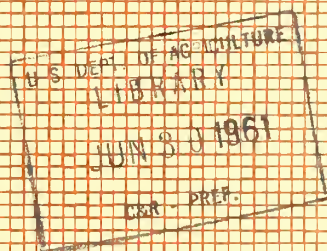 U S DEPT. OF AGRICULTURE
LIBRARY
JUN 30 1961
C&R - PREP.